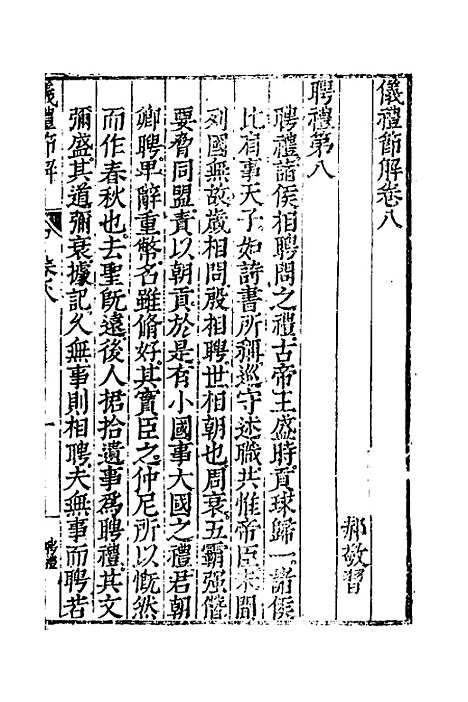 儀禮節解卷八
郝敬習
聘禮第八
聘禮諸侯相聘問之禮古帝王盛時貢球歸一諸侯
比有事天子如詩書所稱巡守述職共惟帝臣未聞
列國無故歲相問殷相聘世相朝也周衰五霸强僭
要脅同盟責以朝貢於是有小國事大國之禮君朝
卿聘卑辭重幣名雖脩好其實臣之仲尼所以慨然
而作春秋也去聖旣遠後人捃拾遺事爲聘禮其文
彌盛其道彌衰據記久無事則相聘夫無事而聘若
儀禮節解
聘禮